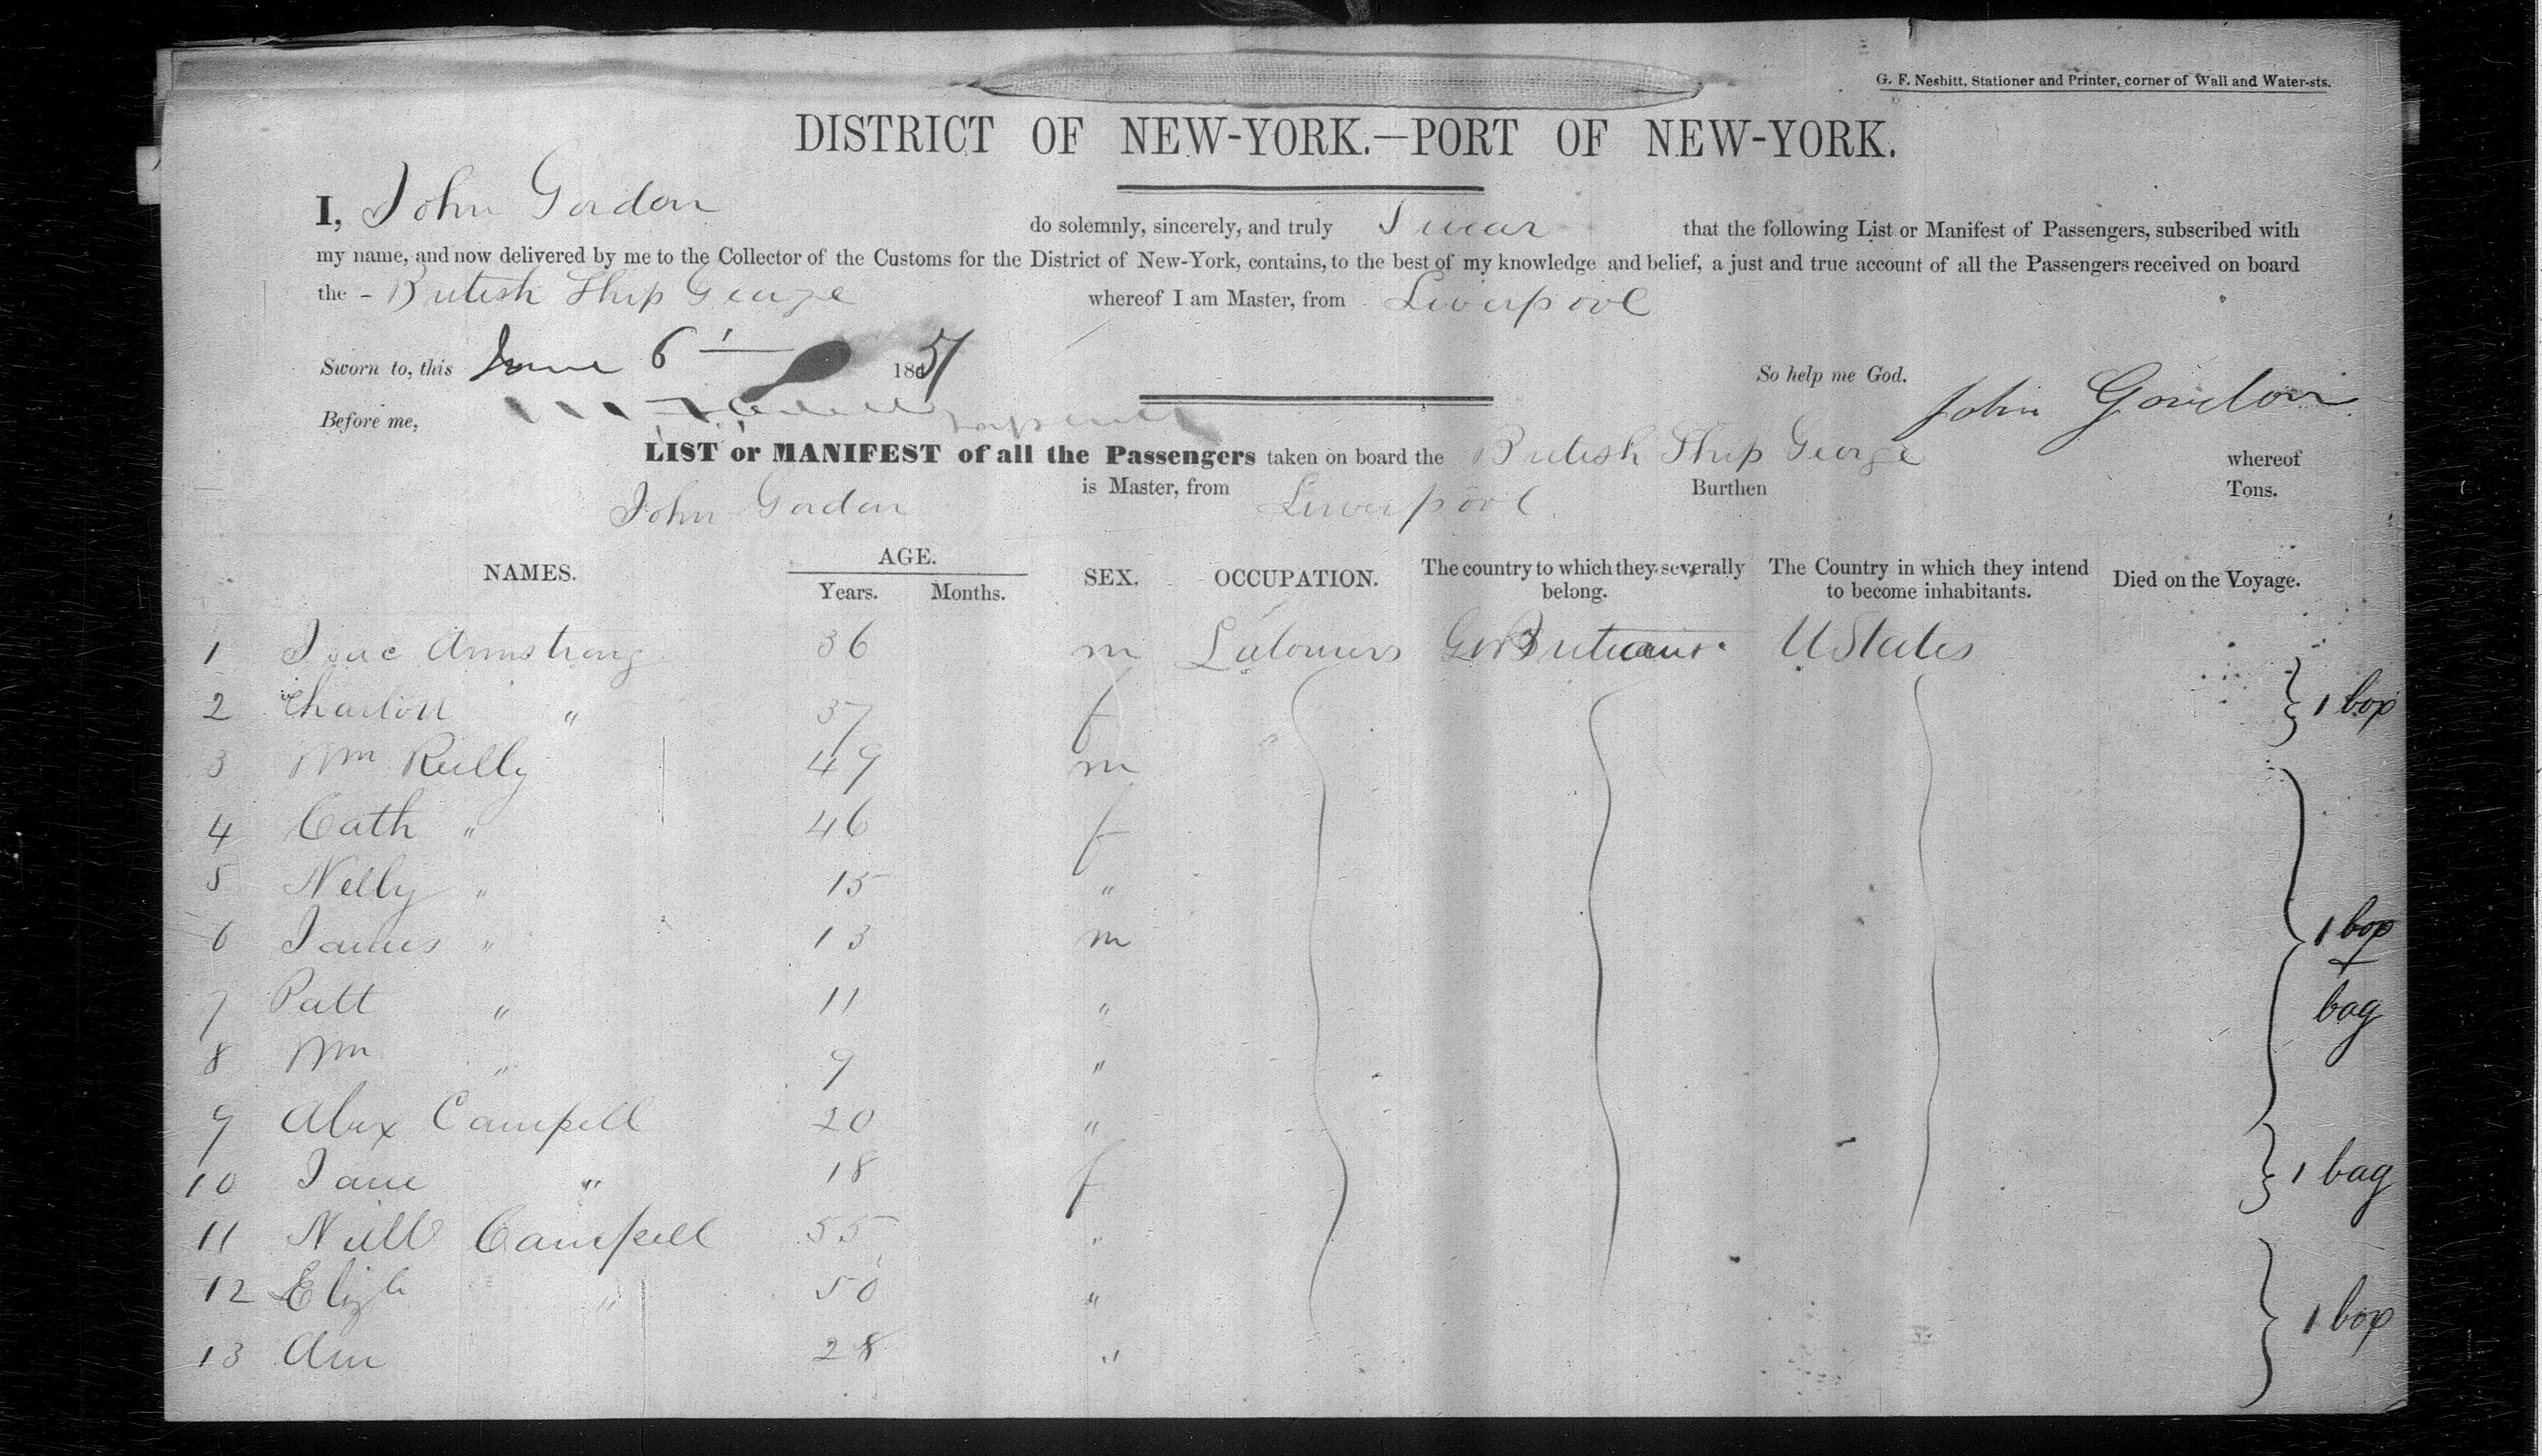 G. F. Nesbitt, Stationer and Printer, corner of Wall and Water-sts.
DISTRICT OF NEW-YORK.—PORT OF NEW-YORK.
I, John Gordon do solemnly, sincerely, and truly Swear that the following List or Manifest of Passengers, subscribed with
my name, and now delivered by me to the Collector of the Customs for the District of New-York, contains, to the best of my knowledge and belief, a just and true account of all the Passengers received on board
the - British Ship George whereof I am Master, from Liverpool
Sworn to, this June 6 1851 So help me God. John Gordon
Before me,
LIST or MANIFEST of all the Passengers taken on board the British Ship George whereof
John Gordon is Master, from Liverpool Burthen Tons.
NAMES. AGE. Years. Months. SEX. OCCUPATION. The country to which they severally belong. The Country in which they intend to become inhabitants. Died on the Voyage.
1 Isac Armstrong 36 m Labourers Gr Britain UStates
2 Charlott " 37 f 1 box
3 Wm Reilly 49 m
4 Cath " 46 f
5 Nelly " 15 "
6 James " 13 m 1 box
7 Patt " 11 " bag
8 Wm " 9 "
9 Alex Campell 20 "
10 Jane " 18 f 1 bag
11 Neill Campell 55 "
12 Elizh " 50 "
13 Ann 28 " 1 box